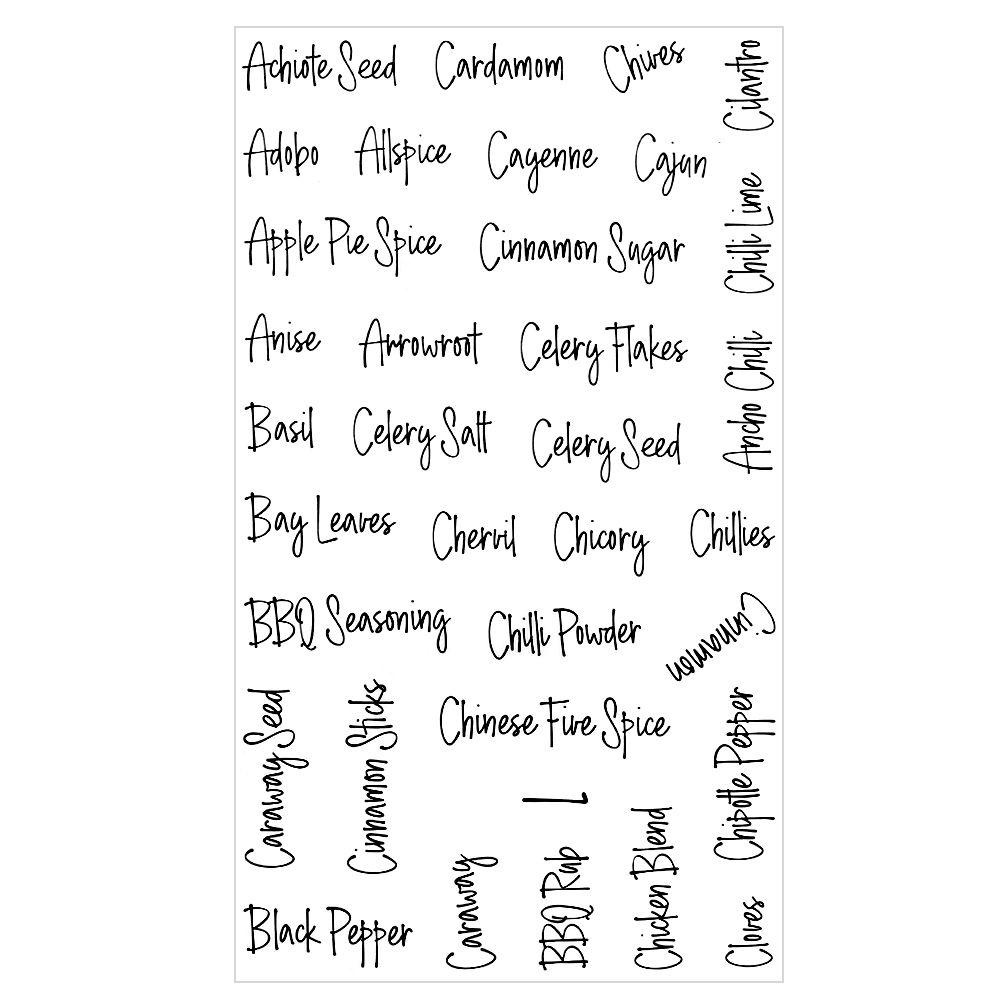 Achiote Seed
Cardamom
Chives
Cilantro
Adobo
Allspice
Cayenne
Cajun
Chilli Lime
Apple Pie Spice
Cinnamon Sugar
Anise
Arrowroot
Celery Flakes
Ancho Chilli
Basil
Celery Salt
Celery Seed
Bay Leaves
Chervil
Chicory
Chillies
BBQ Seasoning
Chilli Powder
Cinnamon
Caraway Seed
Cinnamon Sticks
Chinese Five Spice
Chipotle Pepper
Black Pepper
Caraway
BBQ Rub
Chicken Blend
Cloves